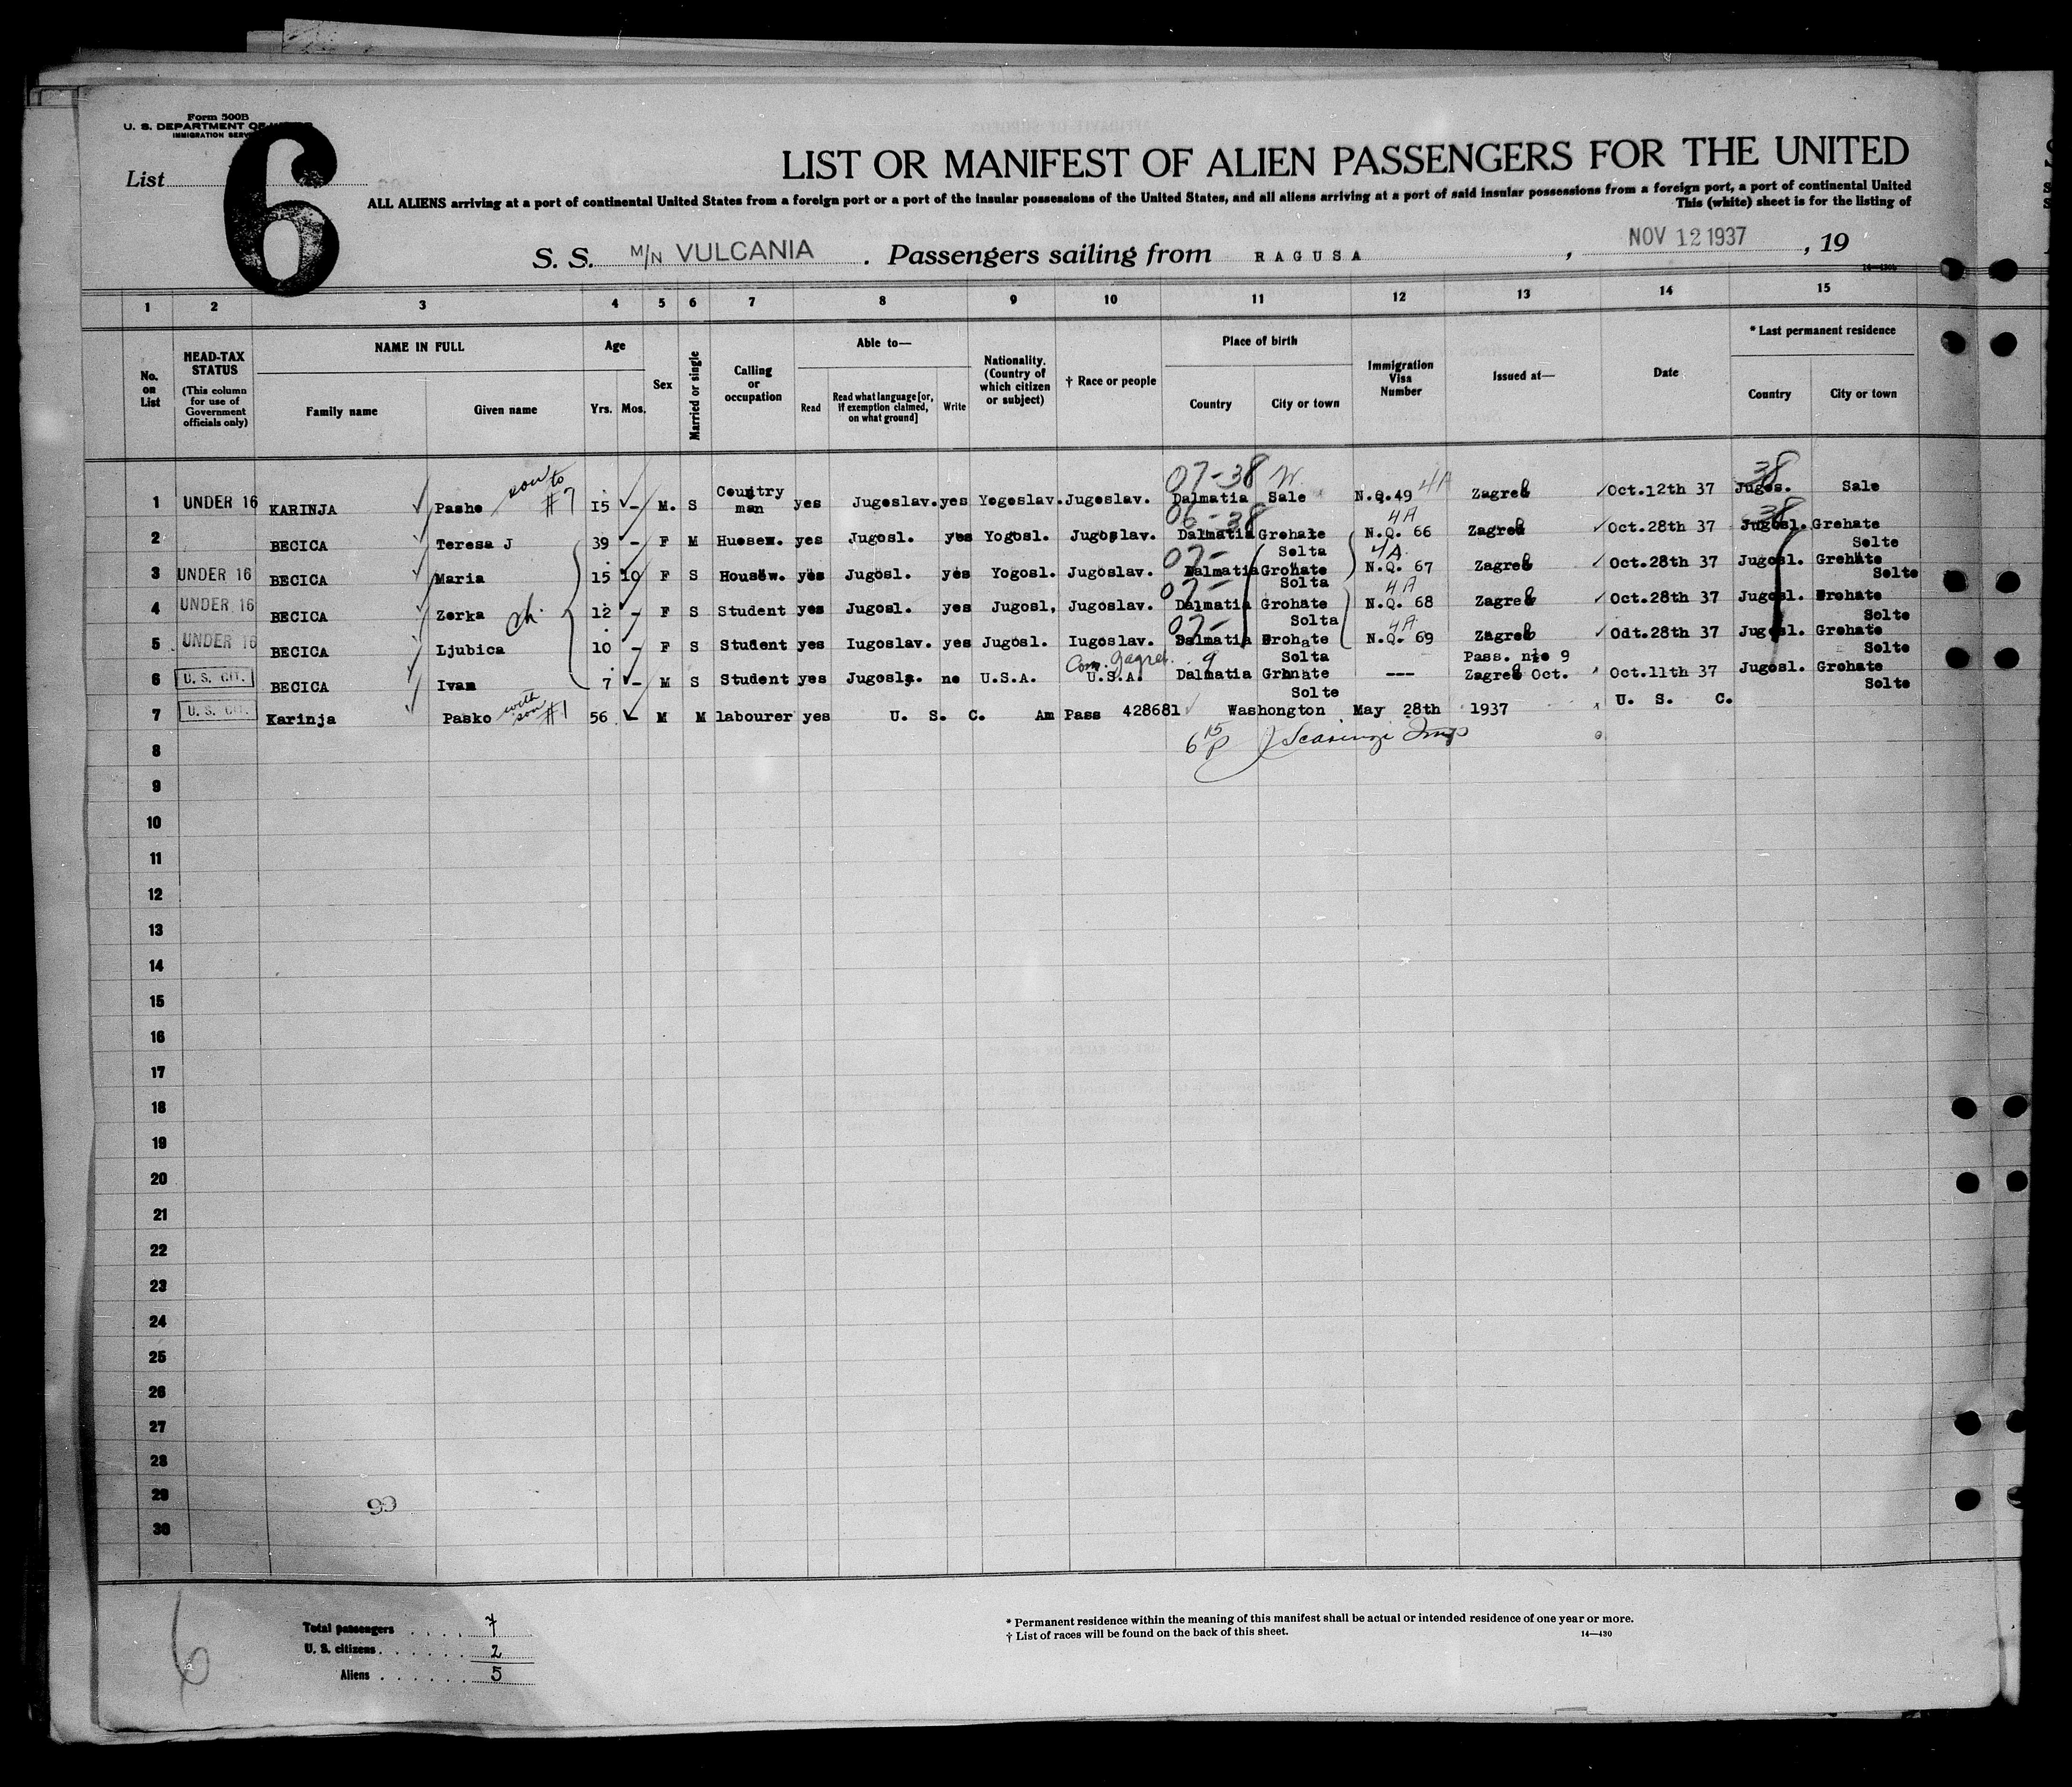 Form 500B
U. S. DEPARTMENT OF
IMMIGRATION SERV
List 6
LIST OR MANIFEST OF ALIEN PASSENGERS FOR THE UNITED
ALL ALIENS arriving at a port of continental United States from a foreign port or a port of the insular possessions of the United States, and all aliens arriving at a port of said insular possessions from a foreign port, a port of continental United
This (white) sheet is for the listing of
S. S. M/N VULCANIA . Passengers sailing from RAGUSA , NOV 12 1937 , 19
14—430b
1 2 3 4 5 6 7 8 9 10 11 12 13 14 15
No. on List
HEAD-TAX STATUS (This column for use of Government officials only)
NAME IN FULL Family name Given name
Age Yrs. Mos.
Sex
Married or single
Calling or occupation
Able to— Read Read what language [or, if exemption claimed, on what ground] Write
Nationality. (Country of which citizen or subject)
† Race or people
Place of birth Country City or town
Immigration Visa Number
Issued at—
Date
* Last permanent residence Country City or town
son to #7 07-38 W. 4A 38
1 UNDER 16 KARINJA Pasho 15 - M. S Country man yes Jugoslav. yes Yogoslav. Jugoslav. Dalmatia Sale N.Q.49 Zagreb Oct.12th 37 Jugos. Sale
06-38 4A 38
2 BECICA Teresa J 39 - F M Husew. yes Jugosl. yes Yogosl. Jugoslav. Dalmatia Grohate Solta N.Q. 66 Zagreb Oct.28th 37 Jugosl. Grehate Solte
07- 4A
3 UNDER 16 BECICA Maria 15 10 F S Housew. yes Jugosl. yes Yogosl. Jugoslav. Dalmatia Grohate Solta N.Q. 67 Zagreb Oct.28th 37 Jugosl. Grehate Solte
07- 4A
4 UNDER 16 BECICA Zorka ch. 12 - F S Student yes Jugosl. yes Jugosl, Jugoslav. Dalmatia Grohate Solta N.Q. 68 Zagreb Oct.28th 37 Jugosl. Grohate Solte
07- 4A
5 UNDER 16 BECICA Ljubica 10 - F S Student yes Iugoslav. yes Jugosl. Iugoslav. Dalmatia Grohate Solta N.Q. 69 Zagreb Odt.28th 37 Jugosl. Grehate Solte
9 Pass. nio 9
6 U. S. CIT. BECICA Ivan 7 - M S Student yes Jugosla. no U.S.A. U.S.A. Dalmatia Grohate Solte --- Zagreb Oct. Oct.11th 37 Jugosl. Grohate Solte
7 U. S. CIT. Karinja Pasko with son #1 56 - M M labourer yes U. S. C. Am Pass 428681 Washongton May 28th 1937 U. S. C.
8 6 15 P
9
10
11
12
13
14
15
16
17
18
19
20
21
22
23
24
25
26
27
28
29
30
6
Total passengers . . . . 7
U. S. citizens . . . . . . 2
Aliens . . . . . . 5
* Permanent residence within the meaning of this manifest shall be actual or intended residence of one year or more.
† List of races will be found on the back of this sheet.
14—430